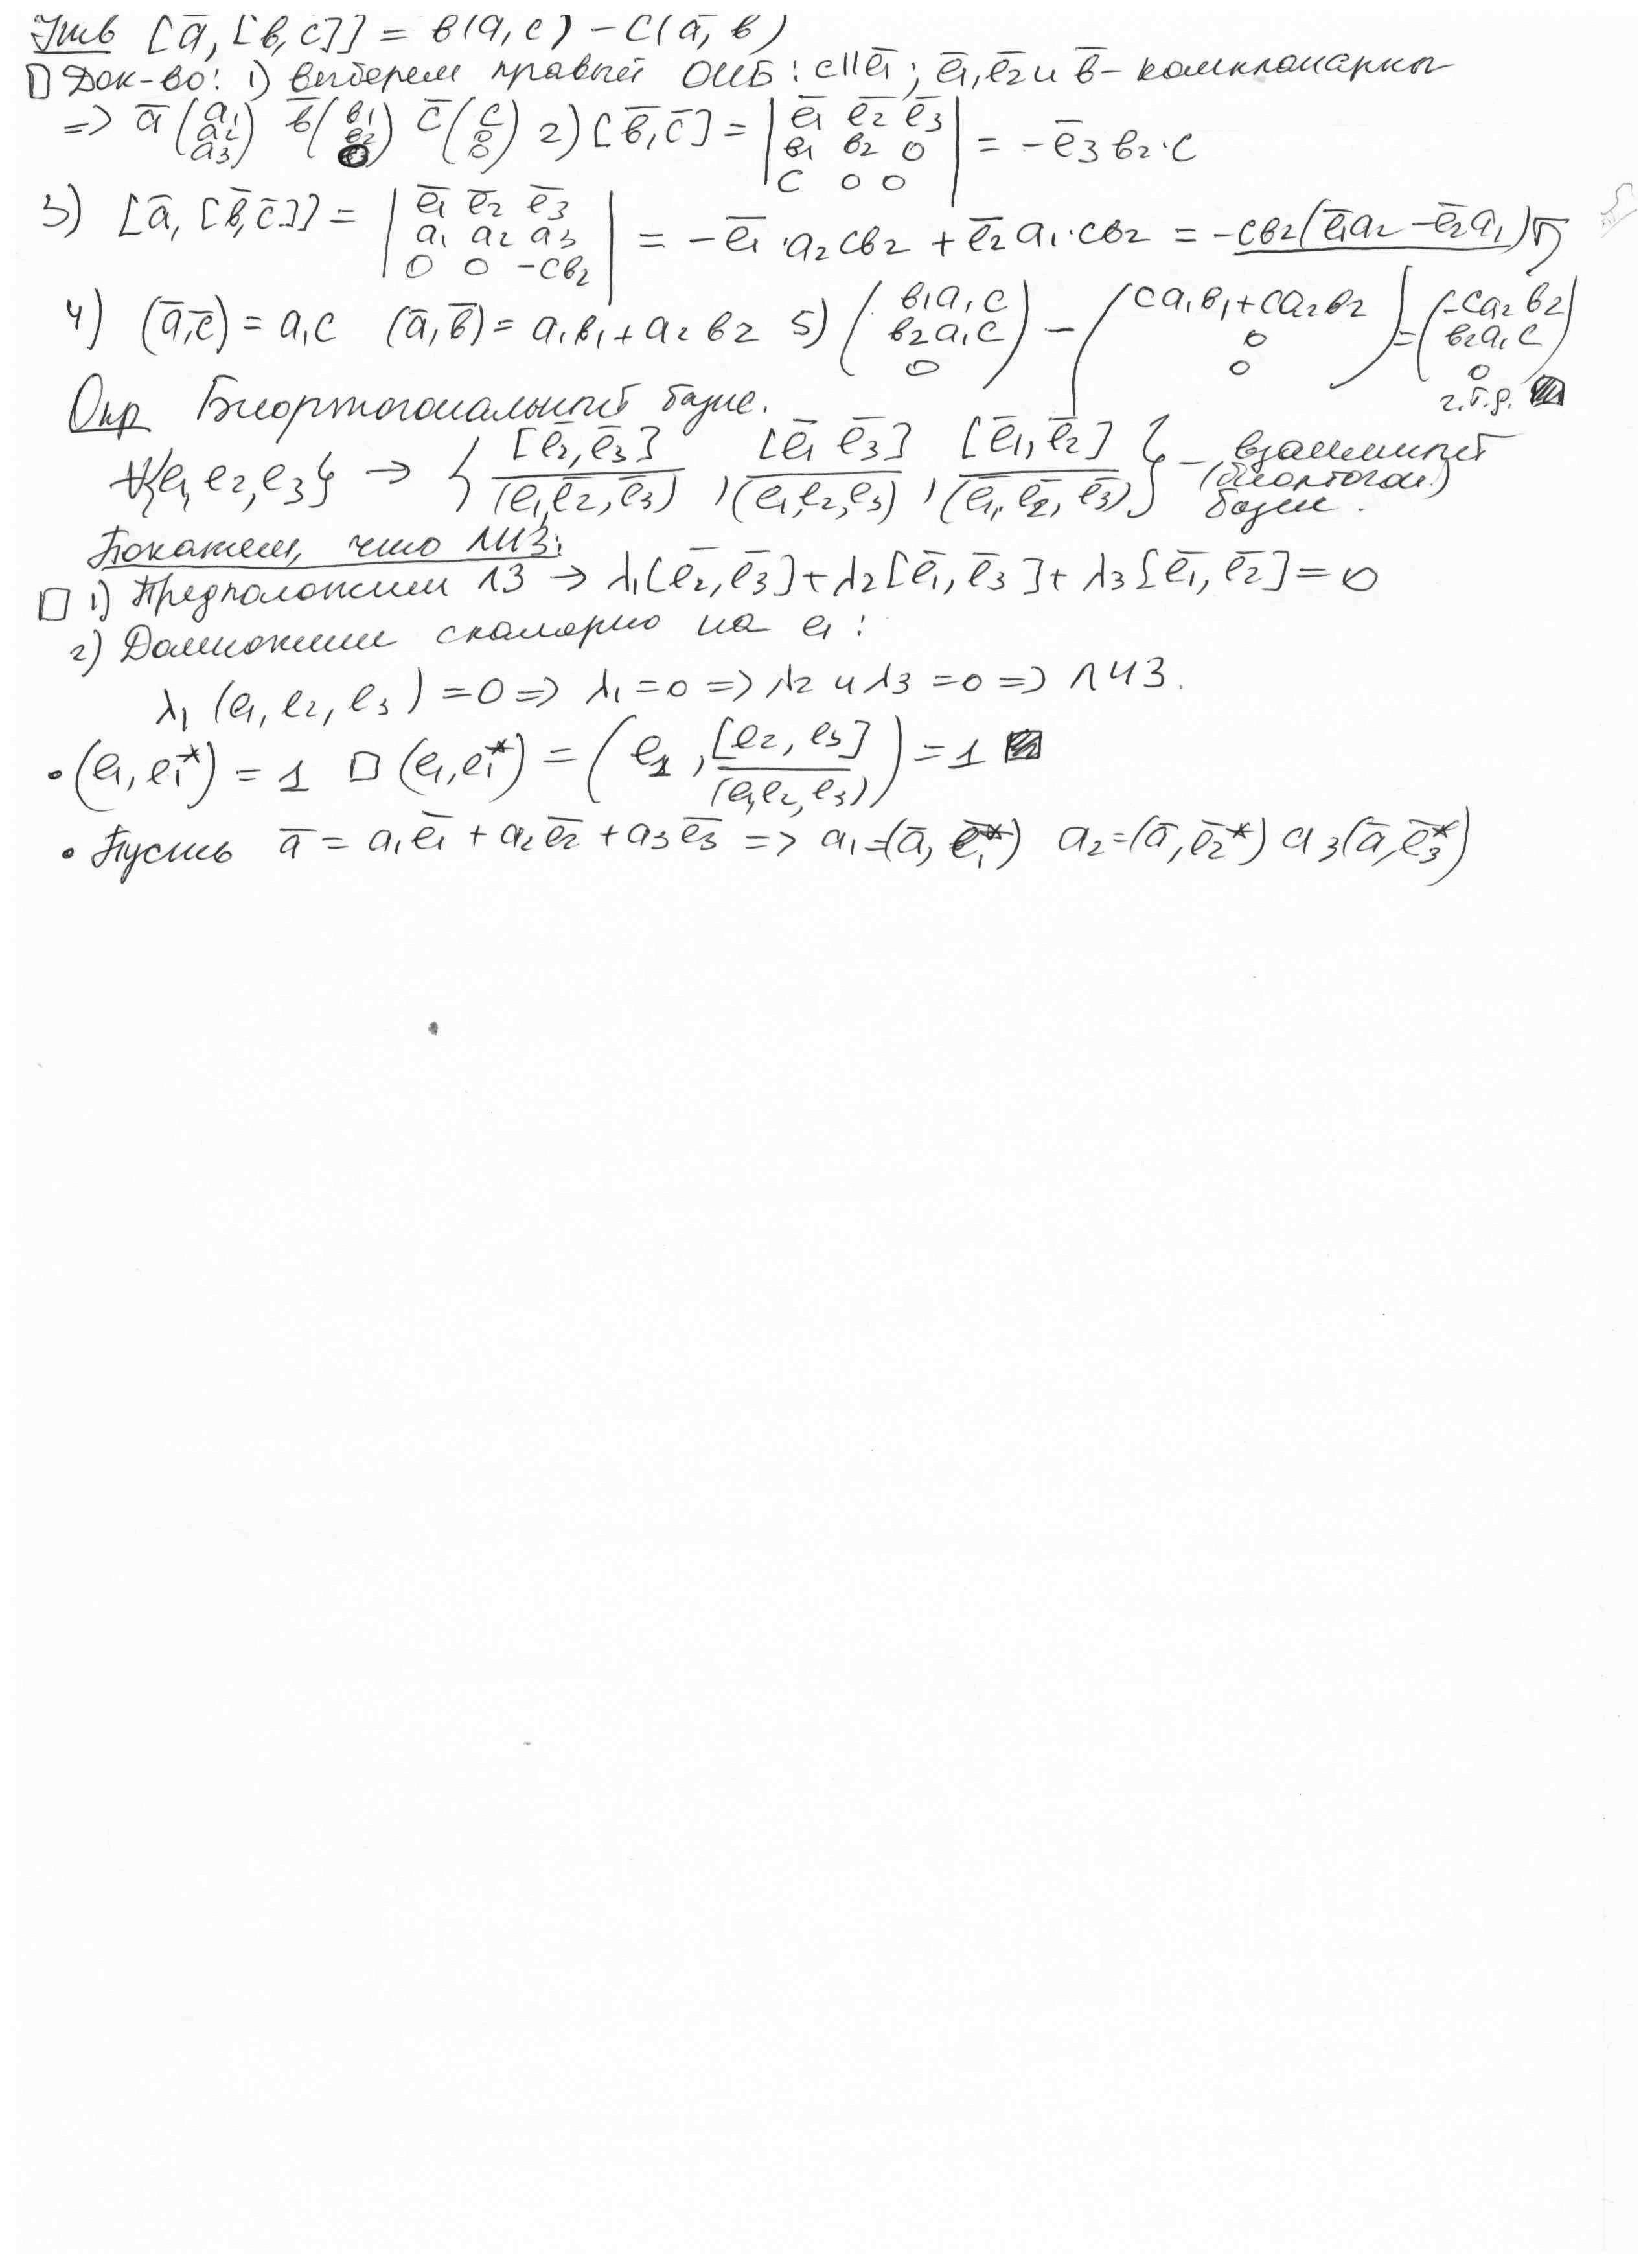 Утв [ā, [в, с]] = в(а, с) − с(ā, в)
▯ Док-во: 1) выберем правый ОНБ: с||ē₁; ē₁, ē₂ и в̄ − компланарны
=> ā (a₁ a₂ a₃) в̄ (в₁ в₂ 0) c̄ (c 0 0) 2) [в̄, c̄] = |ē₁ ē₂ ē₃; в₁ в₂ 0; c 0 0| = −ē₃ в₂·c
3) [ā, [в̄, c̄]] = |ē₁ ē₂ ē₃; a₁ a₂ a₃; 0 0 −cв₂| = −ē₁·a₂cв₂ + ē₂a₁·cв₂ = −cв₂(ē₁a₂ − ē₂a₁)
4) (ā, c̄) = a₁c (ā, в̄) = a₁в₁ + a₂в₂ 5) (в₁a₁c в₂a₁c 0) − (ca₁в₁ + ca₂в₂ 0 0) = (−ca₂в₂ в₂a₁c 0)
ч.т.д.
Опр Биортогональный базис.
∀{e₁, e₂, e₃} → { [ē₂, ē₃]/(ē₁, ē₂, ē₃), [ē₁ ē₃]/(ē₁, ē₂, ē₃), [ē₁, ē₂]/(ē₁, ē₂, ē₃) } − взаимный (биортогон.) базис.
Покажем, что ЛНЗ:
□ 1) Предположим ЛЗ → λ₁[ē₂, ē₃] + λ₂[ē₁, ē₃] + λ₃[ē₁, ē₂] = 0
2) Домножим скалярно на e₁:
λ₁ (e₁, e₂, e₃) = 0 => λ₁ = 0 => λ₂ и λ₃ = 0 => ЛНЗ.
• (e₁, e₁*) = 1 □ (e₁, e₁*) = (e₁, [e₂, e₃]/(e₁, e₂, e₃)) = 1
• Пусть ā = a₁ē₁ + a₂ē₂ + a₃ē₃ => a₁ = (ā, ē₁*) a₂ = (ā, ē₂*) a₃(ā, ē₃*)